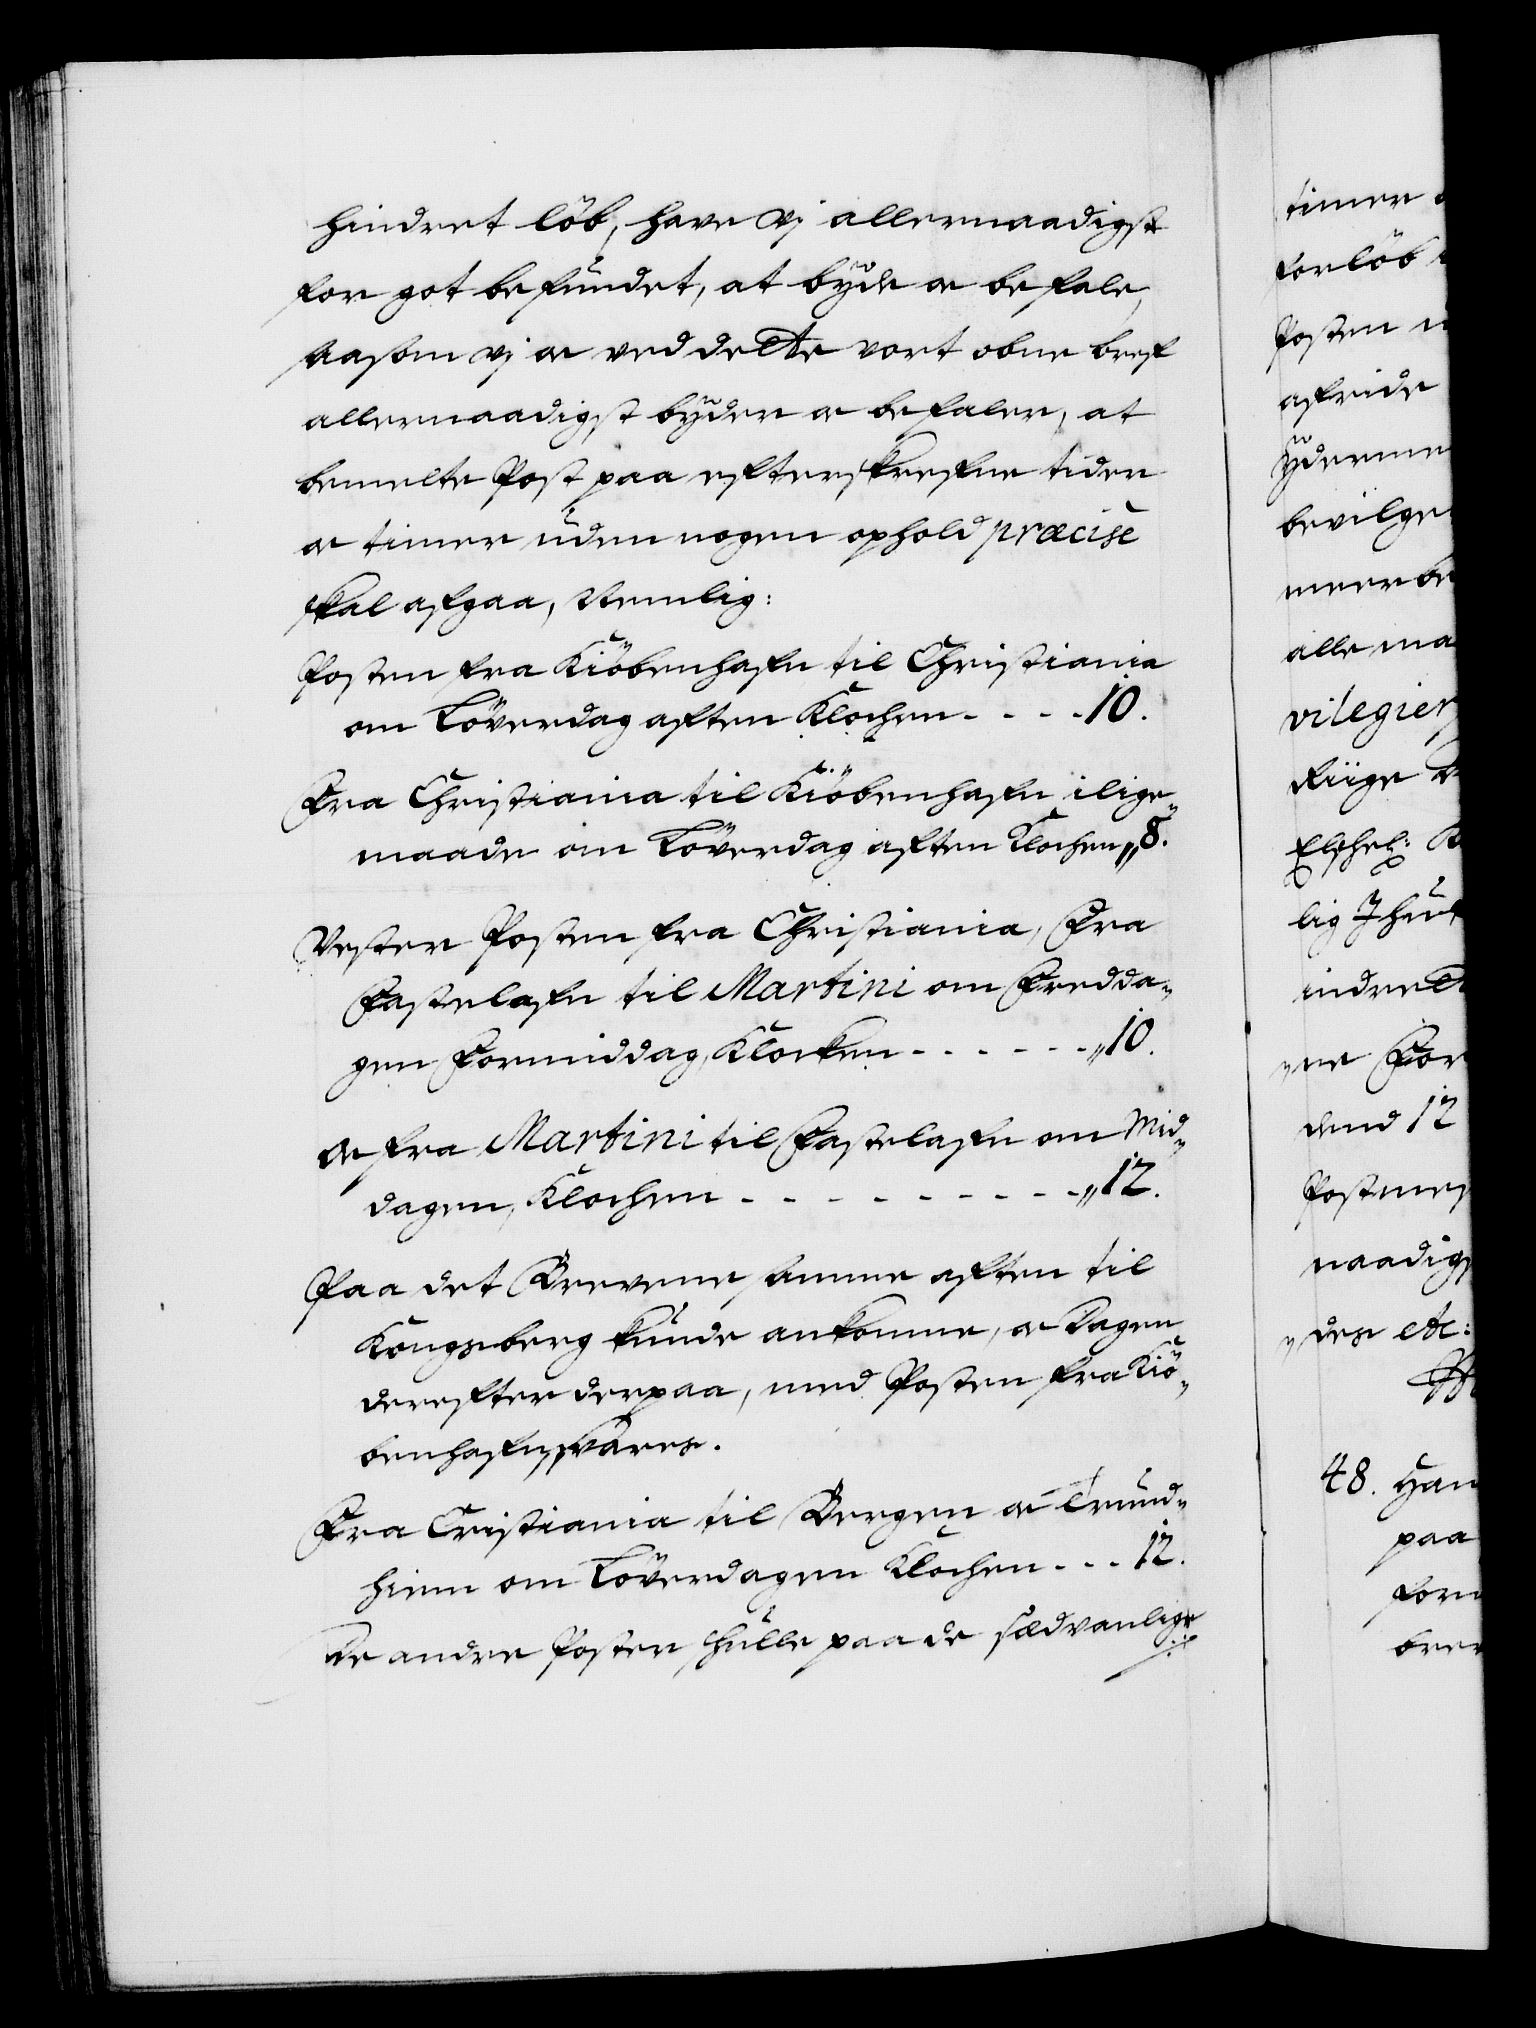 hindret löb, have vj allernaadigst
for got befundet, at byde oc befale,
saasom vj oc ved dette vort obne bref
allernaadigst byder oc befaler, at
bemelte Post paa efterskrefne tider
oc timer uden nogen ophold præcise
skal afgaa, Nemlig:
Posten fra Kiöbenhafn til Christiania
om Löverdag aften Klochen - - - - 10.
Fra Christiania til Kiöbenhafn ilige„
maade om Löverdag aften Klochen „ 8.
Vester Posten fra Christiania, Fra
Fastelafn til Martini om Fredda„
gen Formiddag, Klocken - - - - - - „ 10.
oc fra Martini til Fastelafn om Mid„
dagen, Klochen - - - - - - - - „ 12.
Paa det Brevene samme aften til
Kongsberg kunde ankomme, oc Dagen
derefter derpaa, med Posten fra Kiö„
benhafn, svares.
Fra Cristiania til Bergen oc Trund„
hiem om Löverdagen Klochen - - - 12.
De andre Poster skulle paa de sædvanlige
timer
forlöb
Posten
afride
yderme
bevilge
meer be
alle ma
vilegier
Riige
lig
indrett
ne For
dend 12
Postmes
naadigs
des etc:
48. Han
paa
for
brev